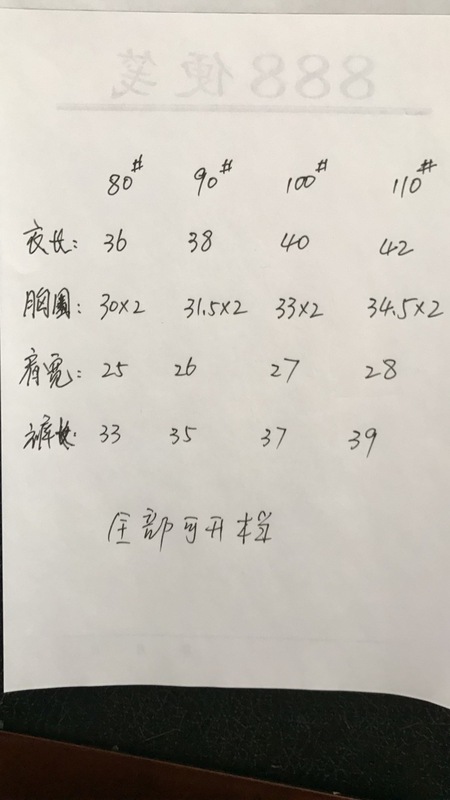 888便笺
80# 90# 100# 110#
衣长: 36 38 40 42
胸围: 30×2 31.5×2 33×2 34.5×2
肩宽: 25 26 27 28
裤长: 33 35 37 39
全部可开档